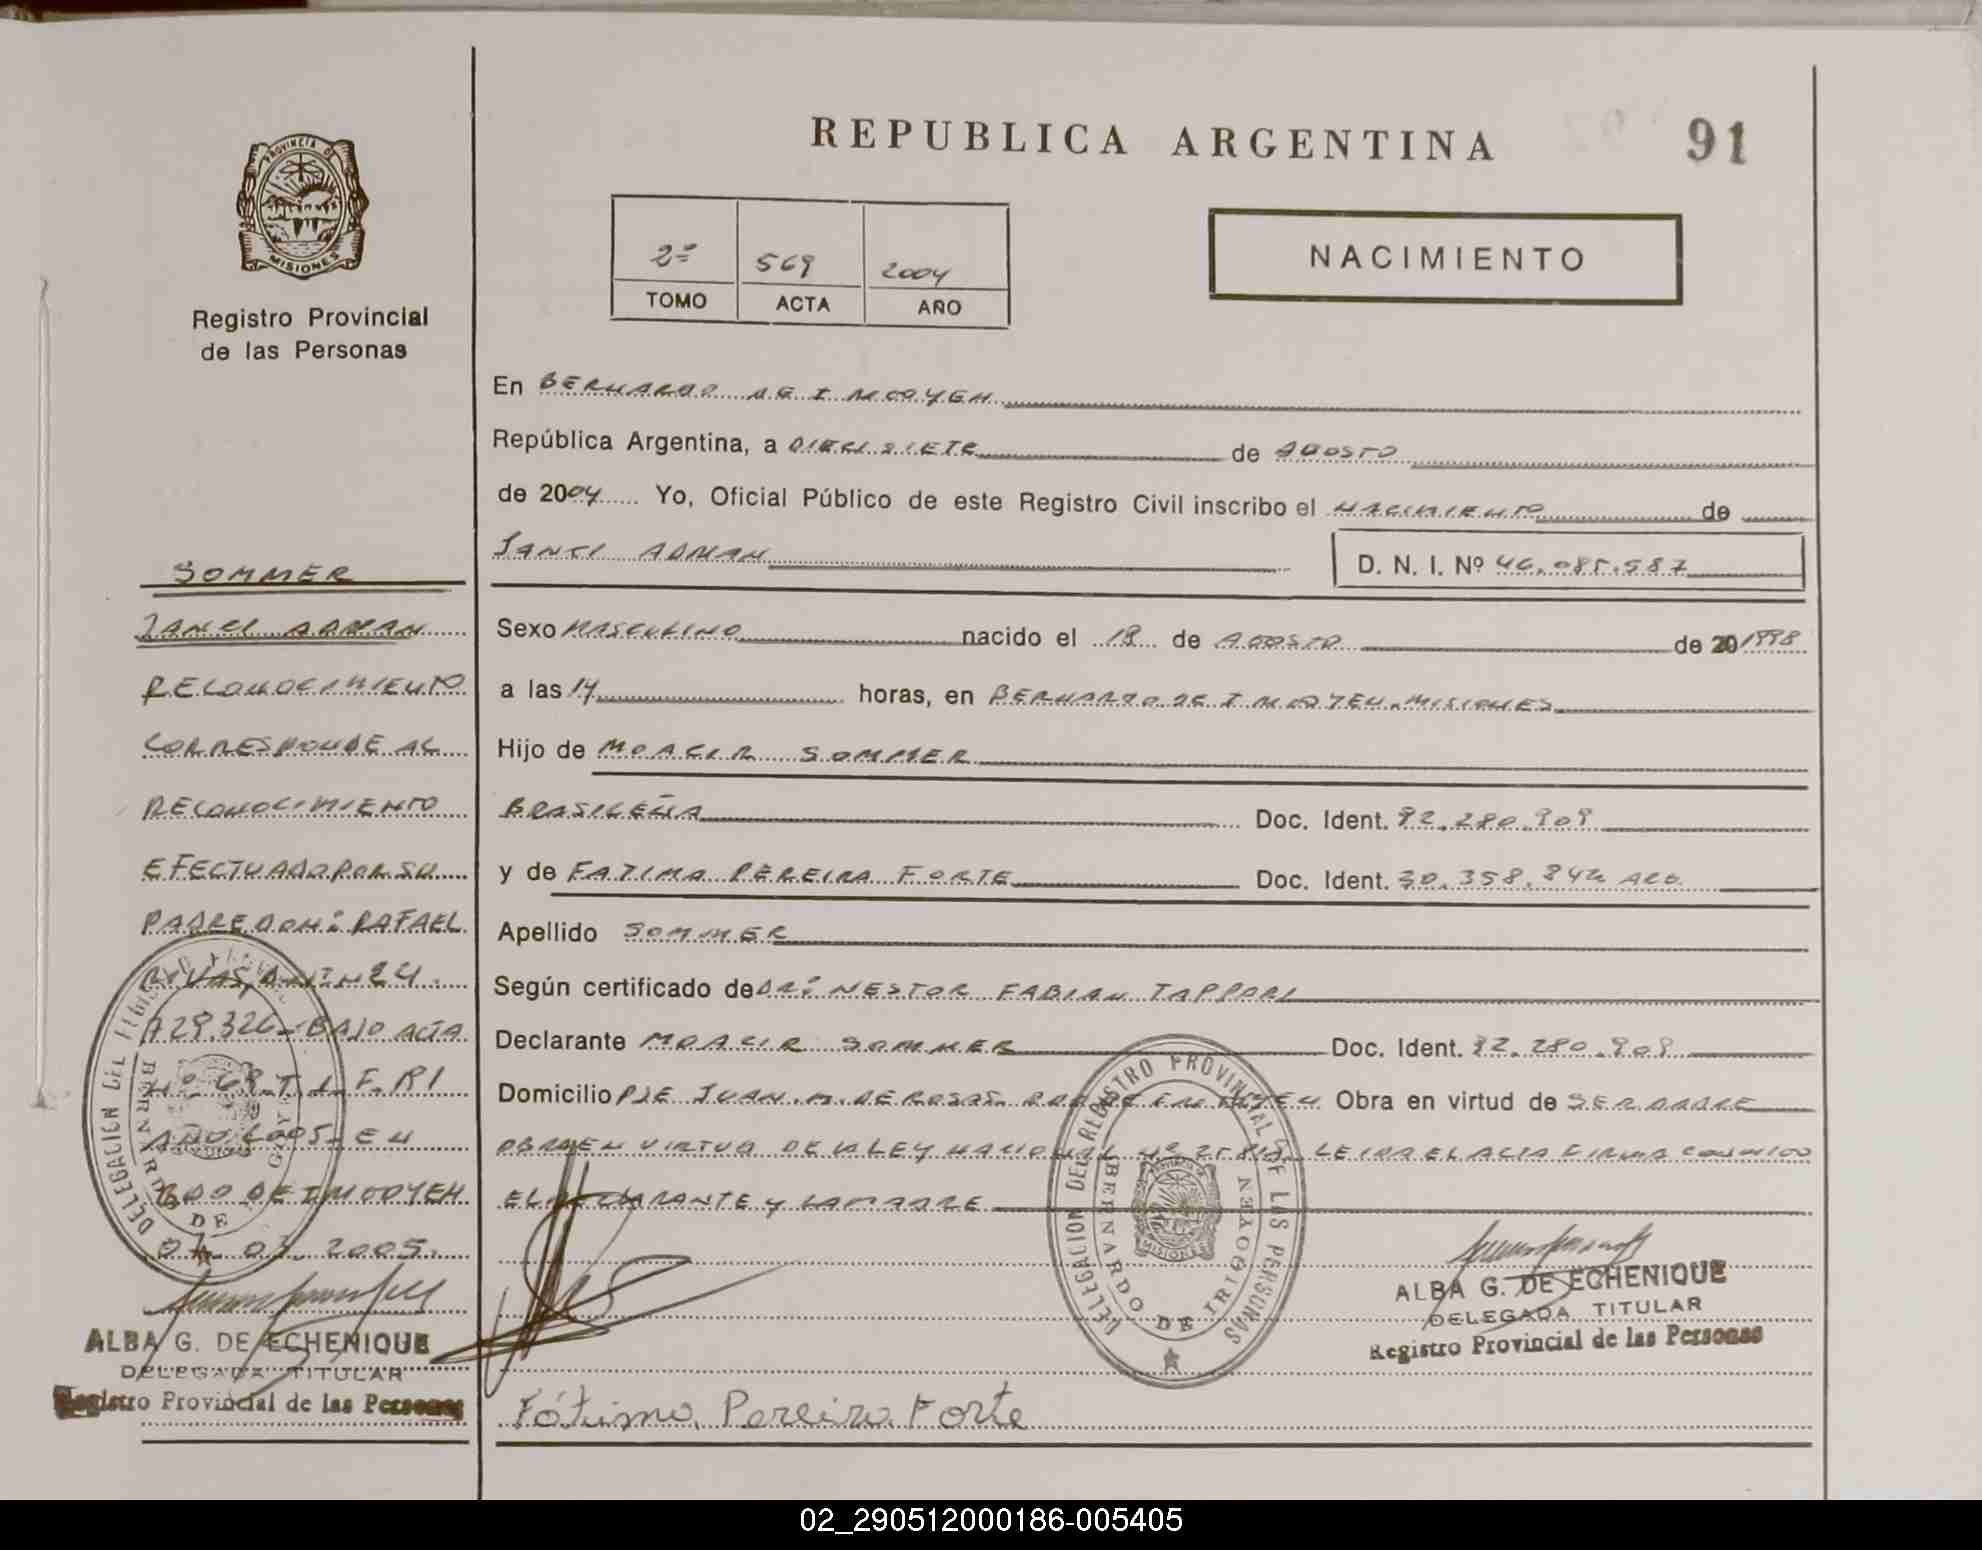 PROVINCIA DE
MISIONES
Registro Provincial
de las Personas
SOMMER
ADRIAN
RECONOCIMIENTO
CORRESPONDE AL
RECONOCIMIENTO
EFECTUADO POR SU
PADRE DON: RAFAEL
RIVAS, D.N.I. Nº 24.
729.326 BAJO ACTA
Nº 68 T. 1 F. 91
AÑO 2005 EN
BDO DE IRIGOYEN
03. 2005.
ALBA G. DE ECHENIQUE
DELEGADA TITULAR
Registro Provincial de las Personas
REPUBLICA ARGENTINA
91
2º 569 2004
TOMO ACTA AÑO
NACIMIENTO
En BERNARDO DE IRIGOYEN
República Argentina, a DIECISIETE de AGOSTO
de 2004 Yo, Oficial Público de este Registro Civil inscribo el NACIMIENTO de
ADRIAN
D. N. I. Nº 46.085.587
Sexo MASCULINO nacido el 18 de AGOSTO de 20 1998
a las 14 horas, en BERNARDO DE IRIGOYEN. MISIONES
Hijo de MOACIR SOMMER
BRASILEÑA Doc. Ident. 92.280.909
y de FATIMA PEREIRA FORTE Doc. Ident. 30.358.842 ARG.
Apellido SOMMER
Según certificado de DR: NESTOR FABIAN TAPPARI
Declarante MOACIR SOMMER Doc. Ident. 92.280.909
Domicilio PJE JUAN M. DE ROSAS Obra en virtud de SER PADRE
OBRA EN VIRTUD DE LA LEY NACIONAL Nº LEIDA EL ACTA FIRMA CONMIGO
EL DECLARANTE Y LA MADRE
DELEGACION DEL REGISTRO PROVINCIAL DE LAS PERSONAS
BERNARDO DE IRIGOYEN
MISIONES
ALBA G. DE ECHENIQUE
DELEGADA TITULAR
Registro Provincial de las Personas
Fátima Pereira Forte
02_290512000186-005405